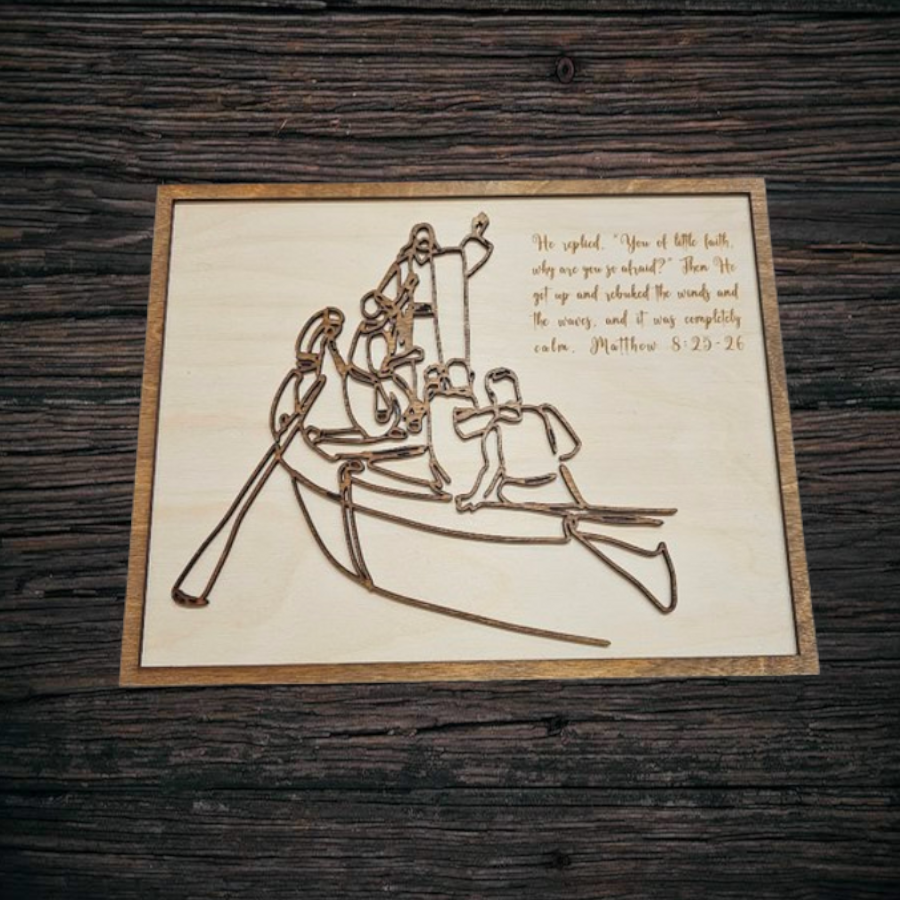 He replied, "You of little faith,
why are you so afraid?" Then He
got up and rebuked the winds and
the waves, and it was completely
calm. Matthew 8:25-26